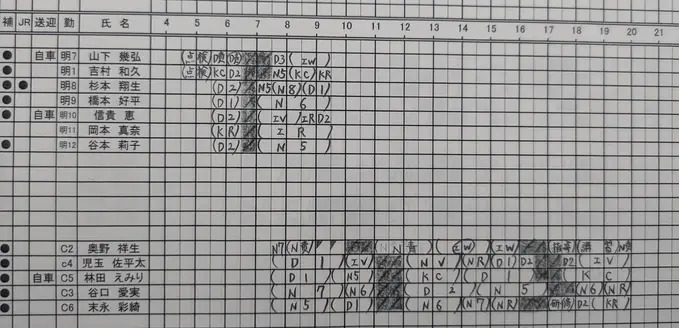 補 JR 送迎 勤 氏 名 4 5 6 7 8 9 10 11 12 13 14 15 16 17 18 19 20 21
● 自車 明7 山下 幾弘 (点検) D3 (IW)
● 明1 吉村 和久 (点検) KC D2 N5 (KC) KR
● ● 明8 杉本 翔生 (D2) N5 (N8) (D1)
● 明9 橋本 好平 (D1) (N6)
● 自車 明10 信貴 恵 (D2) (IV) IR D2
明11 岡本 真奈 (KR) (IR)
● 明12 谷本 莉子 (D2) (N5)
● C2 奥野 祥生 N7 (IW) (IW)
● c4 児玉 佐平太 (D1) (IV) (NV) (NR) (D1) D2 D2 (IV)
● 自車 C5 林田 えみり (D1) (N5) (KC) (D1) (KC)
● C3 谷口 愛実 (N7) (N6) (D2) (N5) (N6) (NR)
● C6 末永 彩綺 (N5) (D1) (N6) (N7) (NR) (研修) D2 (KR)